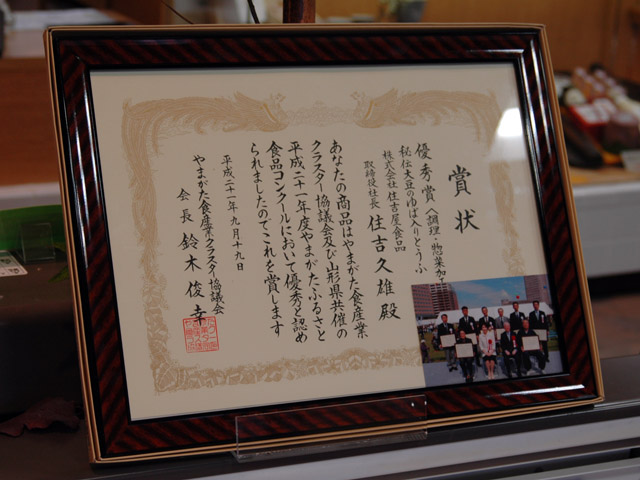 賞状
優秀賞〈調理・惣菜加
秘伝大豆のゆば入りとうふ
株式会社住吉屋食品
取締役社長 住吉久雄 殿
あなたの商品はやまがた食産業
クラスター協議会及び山形県共催の
平成二十一年度やまがたふるさと
食品コンクールにおいて優秀と認め
られましたのでこれを賞します
平成二十一年九月十九日
やまがた食産業クラスター協議会
会長 鈴木俊幸